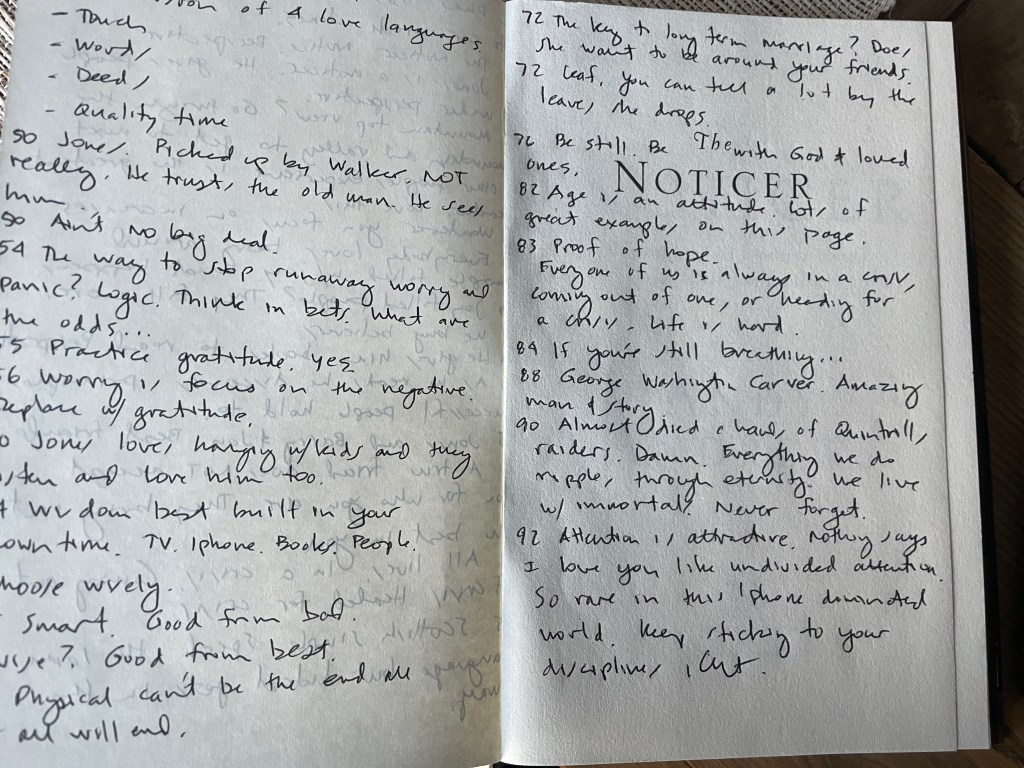 of 4 love languages.
- Touch
- Words
- Deeds
- Quality time
50 Jones. Picked up by Walker. NOT
really. He trusts the old man. He sees
him
50 Ain't no big deal.
54 The way to stop runaway worry and
panic? Logic. Think in bets. What are
the odds...
55 Practice gratitude. Yes
56 Worry is focus on the negative.
Replace w/ gratitude.
Jones loves hanging w/ kids and they
listen and love him too.
Wisdom best built in your
own time. TV. Iphone. Books. People.
Choose wisely.
Smart. Good from bad.
Wise? Good from best.
Physical can't be the end all
all will end.
72 The key to long term marriage? Does
she want to be around your friends.
72 Leaf. You can tell a lot by the
leaves she drops.
76 Be still. Be with God & loved
ones.
The
NOTICER
82 Age is an attitude. Lots of
great examples on this page.
83 Proof of hope.
Everyone of us is always in a crisis,
coming out of one, or heading for
a crisis. Life is hard.
84 If you're still breathing...
88 George Washington Carver. Amazing
man & story.
90 Almost died @ hands of Quintrill's
raiders. Damn. Everything we do
ripples through eternity. We live
w/ immortals. Never forget.
92 Attention is attractive. Nothing says
I love you like undivided attention.
So rare in this Iphone dominated
world. Keep sticking to your
disciplines,